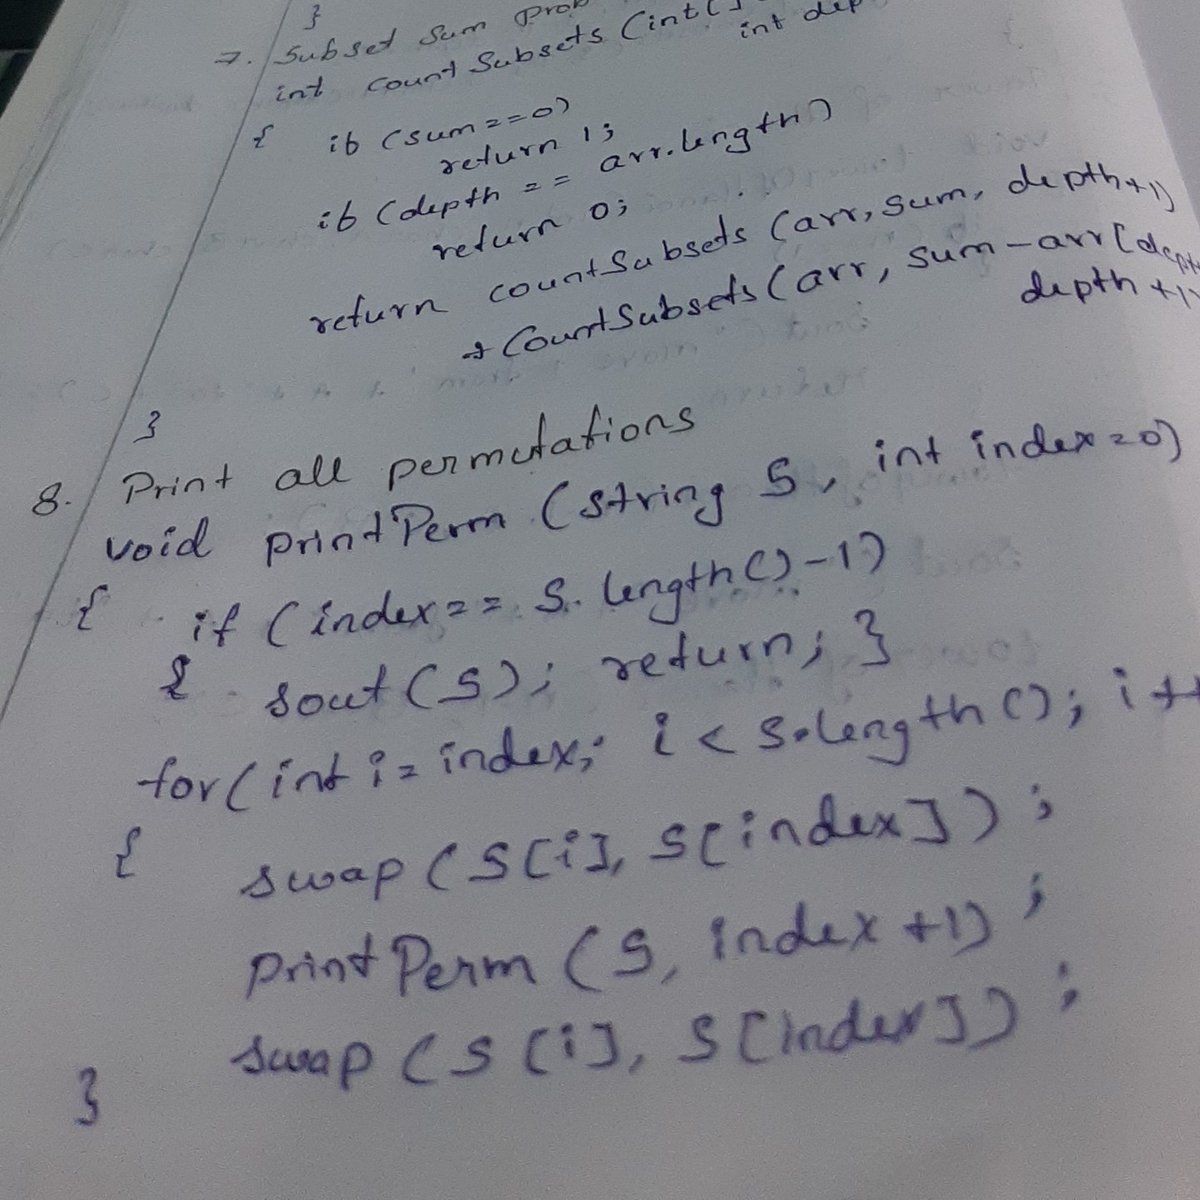 }
7. Subset Sum Prob
int countSubsets (int[]
int dep
{ if (sum==0)
return 1;
if (depth == arr.length)
return 0;
return countSubsets (arr, sum, depth+1)
+ CountSubsets(arr, sum-arr[dept
depth +1)
}
8. Print all permutations
void printPerm (string S, int index=0)
{ if (index== S.length()-1)
{ sout(S); return; }
for(int i= index; i < s.length(); i++
{ swap (S[i], S[index]);
printPerm (S, index+1);
swap (S[i], S[index]);
}